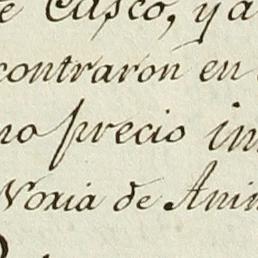 e Casco, y a
contraron en
no precio in
Noxia de Ani